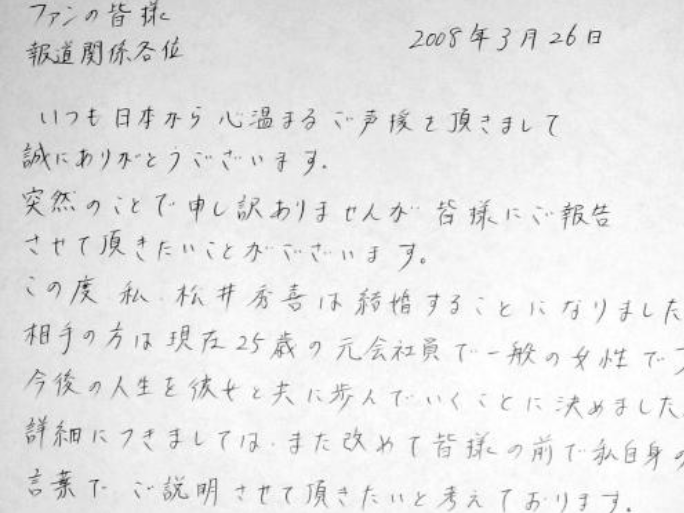 ファンの皆様
報道関係各位
2008年3月26日
いつも日本から心温まるご声援を頂きまして
誠にありがとうございます。
突然のことで申し訳ありませんが皆様にご報告
させて頂きたいことがございます。
この度、私、松井秀喜は結婚することになりました
相手の方は現在25歳の元会社員で一般の女性で
今後の人生を彼女と共に歩んでいくことに決めました
詳細につきましては、また改めて皆様の前で私自身の
言葉で、ご説明させて頂きたいと考えております。